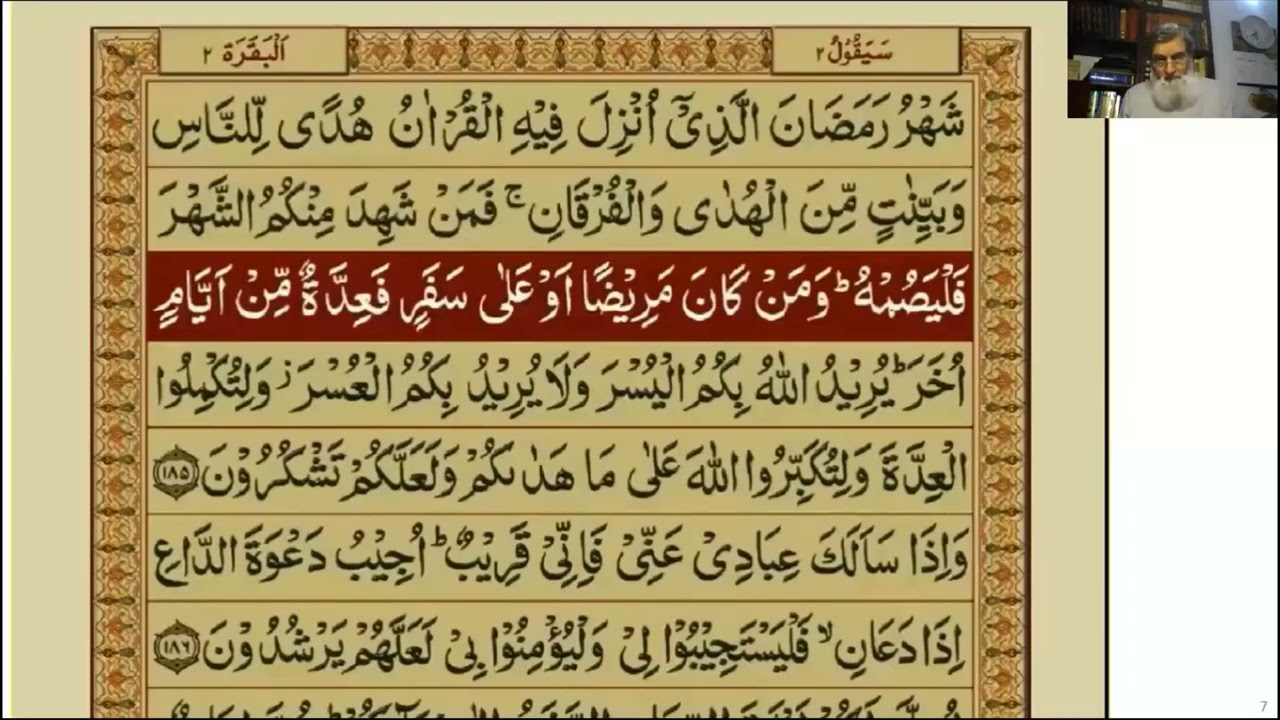 سَيَقُوْلُ ٢
اَلْبَقَرَة ٢
شَهْرُ رَمَضَانَ الَّذِىْٓ اُنْزِلَ فِيْهِ الْقُرْاٰنُ هُدًى لِّلنَّاسِ
وَبَيِّنٰتٍ مِّنَ الْهُدٰى وَالْفُرْقَانِۚ فَمَنْ شَهِدَ مِنْكُمُ الشَّهْرَ
فَلْيَصُمْهُؕ وَمَنْ كَانَ مَرِيْضًا اَوْ عَلٰى سَفَرٍ فَعِدَّةٌ مِّنْ اَيَّامٍ
اُخَرَؕ يُرِيْدُ اللّٰهُ بِكُمُ الْيُسْرَ وَلَا يُرِيْدُ بِكُمُ الْعُسْرَز وَلِتُكْمِلُوا
الْعِدَّةَ وَلِتُكَبِّرُوا اللّٰهَ عَلٰى مَا هَدٰٮكُمْ وَلَعَلَّكُمْ تَشْكُرُوْنَ ١٨٥
وَاِذَا سَاَلَكَ عِبَادِىْ عَنِّىْ فَاِنِّىْ قَرِيْبٌؕ اُجِيْبُ دَعْوَةَ الدَّاعِ
اِذَا دَعَانِۙ فَلْيَسْتَجِيْبُوْا لِىْ وَلْيُؤْمِنُوْا بِىْ لَعَلَّهُمْ يَرْشُدُوْنَ ١٨٦
7